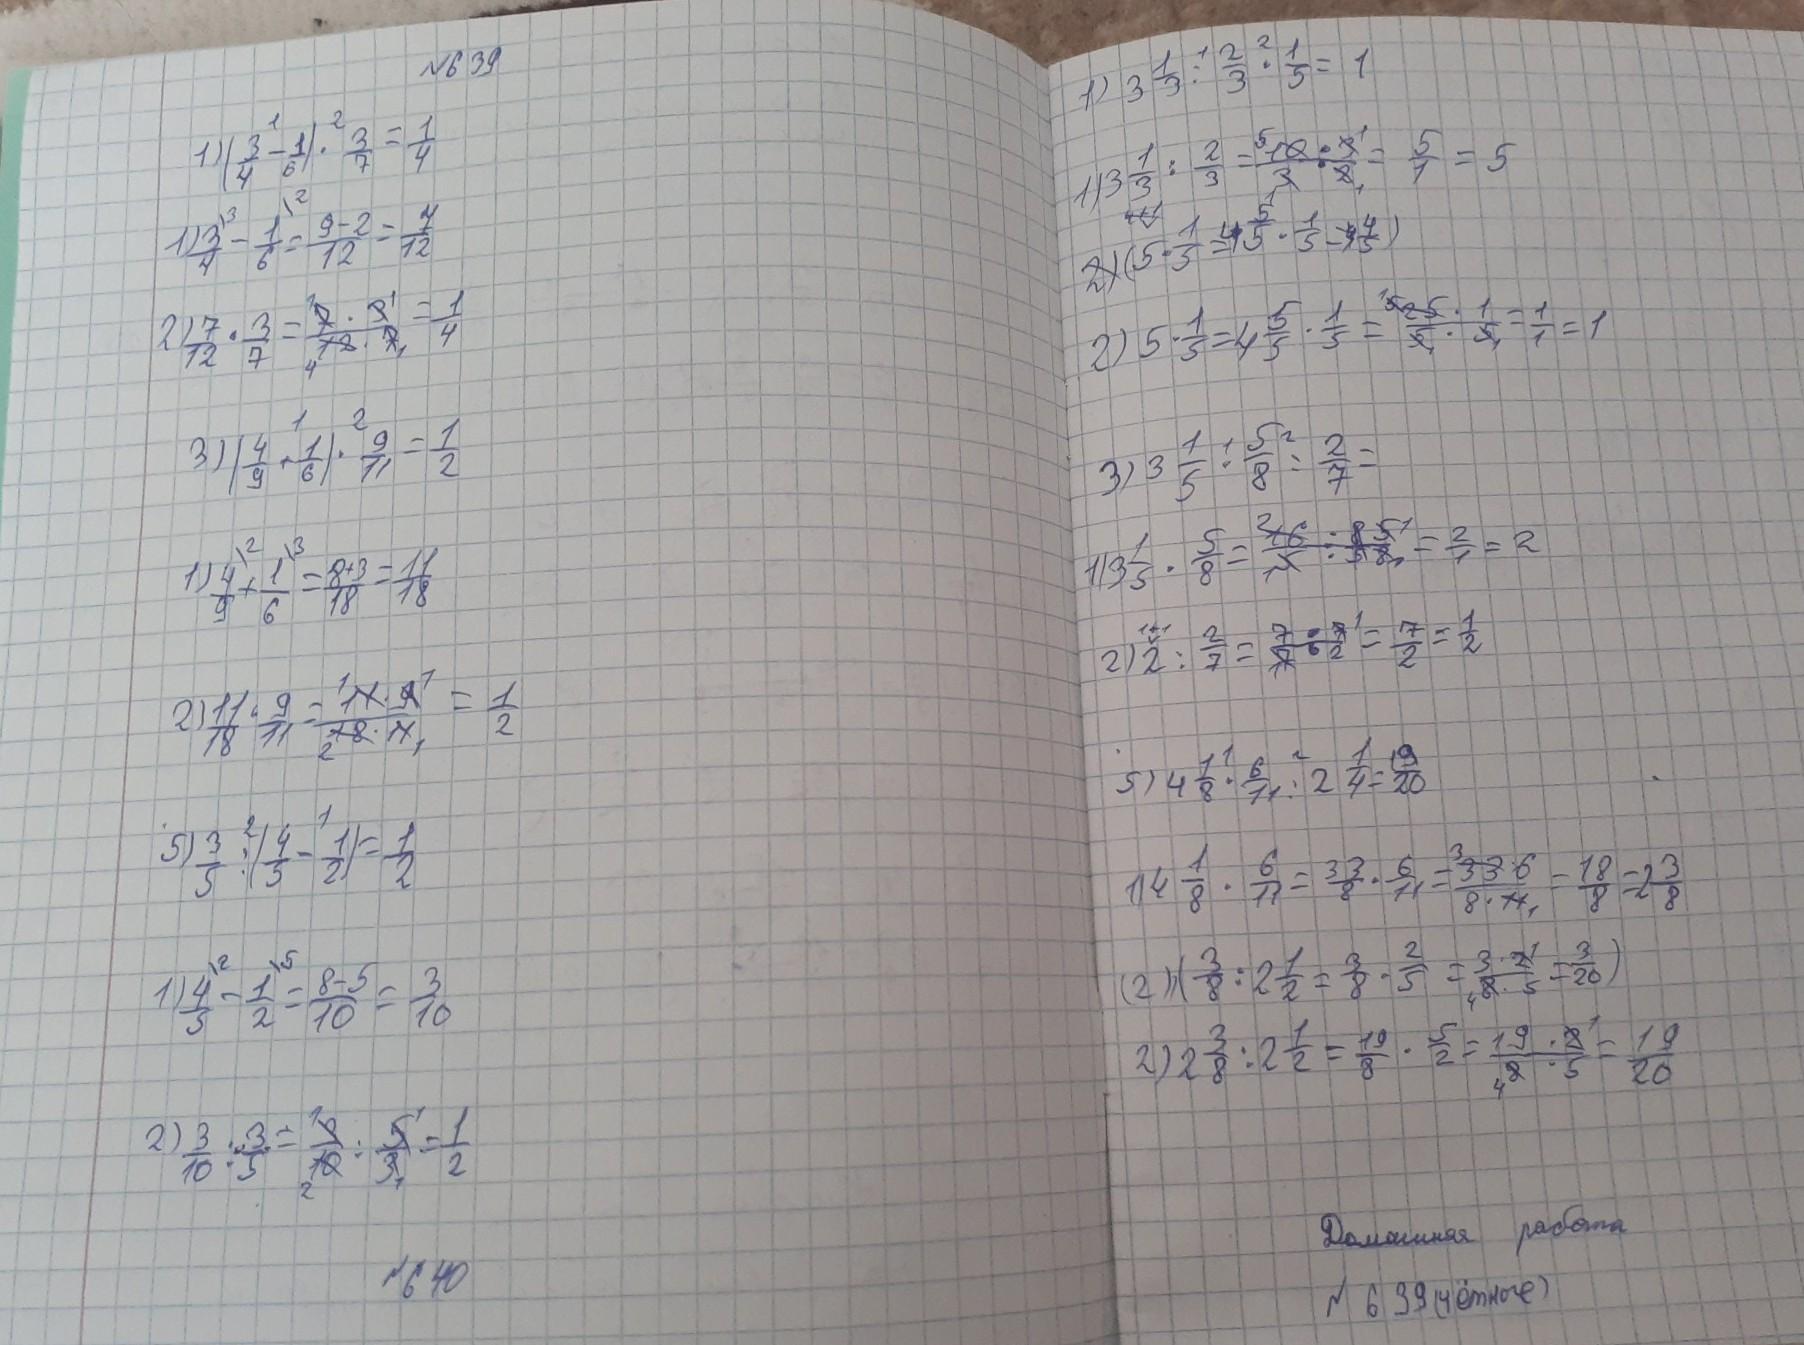 №639
1) (3/4 - 1/6) · 3/7 = 1/4
1) 3/4 - 1/6 = 9-2/12 = 7/12
2) 7/12 · 3/7 = 7·3/12·7 = 1/4
3) (4/9 + 1/6) · 9/11 = 1/2
1) 4/9 + 1/6 = 8+3/18 = 11/18
2) 11/18 · 9/11 = 11·9/18·11 = 1/2
5) 3/5 : (4/5 - 1/2) = 1/2
1) 4/5 - 1/2 = 8-5/10 = 3/10
2) 3/10 : 3/5 = 3/10 : 5/3 = 1/2
№640
1) 3 1/3 : 2/3 · 1/5 = 1
1) 3 1/3 : 2/3 = 10·3/3·2 = 5/1 = 5
2) (5 · 1/5 = 4 5/5 · 1/5 = 4 4/5)
2) 5 · 1/5 = 4 5/5 · 1/5 = 25·1/5·5 = 1/1 = 1
3) 3 1/5 : 5/8 : 2/7 =
1) 3 1/5 · 5/8 = 2/1 = 2
2) 2 : 2/7 = 7/2 = 1/2
5) 4 1/8 · 6/11 : 2 1/4 = 19/20
1) 4 1/8 · 6/11 = 33/8 · 6/11 = 33·6/8·11 = 18/8 = 2 3/8
(2) (3/8 : 2 1/2 = 3/8 · 2/5 = 3·2/8·5 = 3/20)
2) 2 3/8 : 2 1/2 = 19/8 · 5/2 = 19·2/8·5 = 19/20
Домашняя работа
№ 639 (чётные)